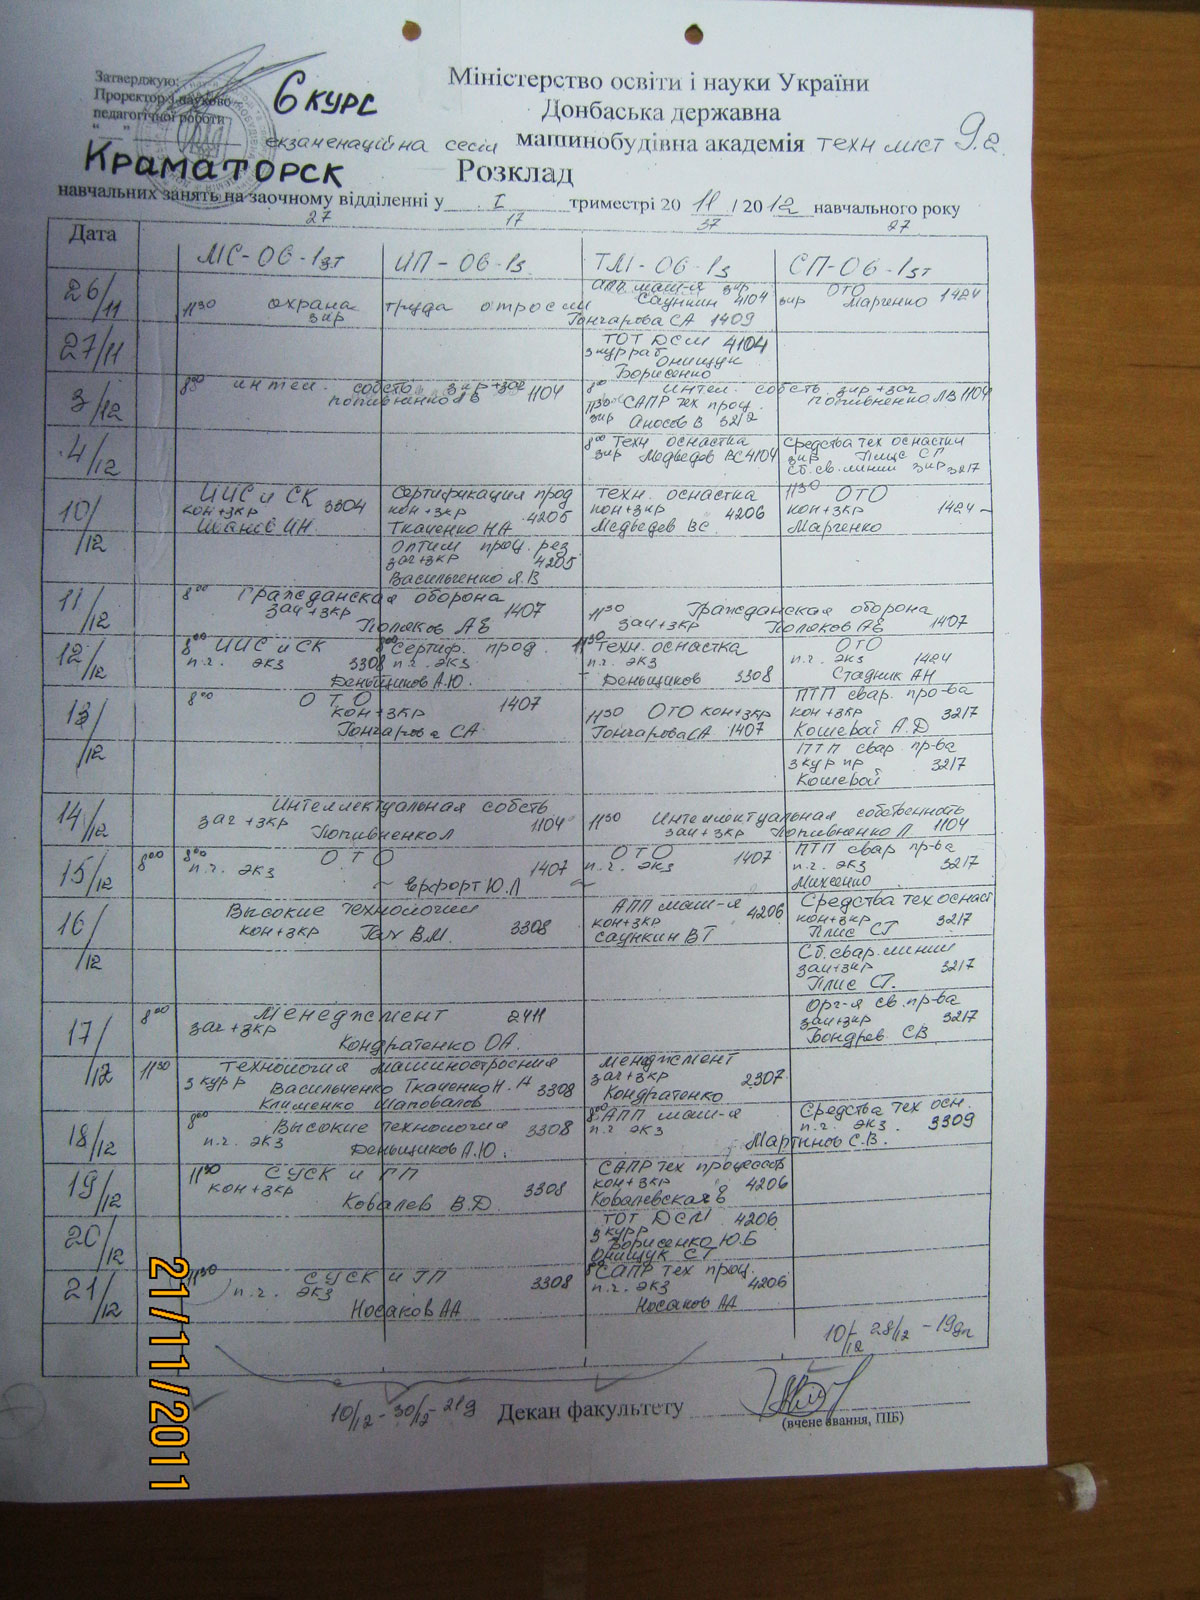 Затверджую:
Проректор з науково-
педагогічної роботи
6 курс
Міністерство освіти і науки України
Донбаська державна
машинобудівна академія
екзаменаційна сесія
техн лист 9.2
Краматорск
Розклад
навчальних занять на заочному відділенні у I триместрі 20 11 / 20 12 навчального року
27 17 37 27
Дата
МС-06-1зт ИП-06-1з ТМ-06-1з СП-06-1зт
26/11
11 30 охрана труда отросли
зкр Гончарова СА 1409
АПП маш-я зкр
Саункин 4104
ОТО
зкр Марченко 1424
27/11
ТОТ ДСМ 4104
з кур раб
Онищук
Борисенко
3/12
8 00 интел. собств зкр+зач 1104
Попивненко ЛВ
8 00 Интел. собсть зкр+зач
Попивненко ЛВ 1104
11 30 САПР тех проц.
зкр Аносов В 3212
4/12
8 00 Техн оснастка
зкр Медведев ВС 4104
Средства тех оснастки
зкр Плис СГ
Сб.св.линии зкр 3217
10/12
ИИС и СК 3304
кон+зкр
Шанов ИН.
Сертификация прод
кон+зкр 4205
Ткаченко НА
техн. оснастка
кон+зкр 4206
Медведев ВС
11 30 ОТО
кон+зкр 1424
Марченко
/12
Оптим проц. рез.
зач+зкр 4205
Васильченко Я.В
11/12
8 00 Гражданская оборона
зач+зкр 1407
Поляков АЕ
11 30 Гражданская оборона
зач+зкр Поляков АЕ 1407
12/12
8 00 ИИС и СК
п.г. экз 3308
8 00 Сертиф. прод.
п.г. экз
Деньщиков А.Ю.
11 30 Техн. оснастка
п.г. экз
Деньщиков 3308
ОТО
п.г. экз 1424
Стадник АН
13/12
8 00 ОТО 1407
кон+зкр
Гончарова СА
11 30 ОТО кон+зкр
Гончарова СА 1407
ПТП свар. про-ва
кон+зкр 3217
Кошевой А.Д
/12
ПТП свар пр-ва
з кур пр 3217
Кошевой
14/12
Интеллектуальная собсть
зач+зкр Попивненко Л 1104
11 30 Интеллектуальная собственность
зач+зкр Попивненко Л. 1104
15/12
8 00
8 00 ОТО
п.г. экз 1407
ерфорт Ю.Л
ОТО 1407
п.г. экз
ПТП свар пр-ва
п.г. экз 3217
16/12
Высокие технологии
кон+зкр Гах В.М. 3308
АПП маш-я
кон+зкр 4206
Саункин ВТ
Средства тех оснаст
кон+зкр 3217
Плис СГ
/12
Сб.свар.линии
зач+зкр 3217
Плис СГ.
17/12
8 00 Менеджмент 2411
зач+зкр
Кондратенко ОА.
Орг-я св.пр-ва
зач+зкр 3217
Бондрев СВ
/12
11 30 Технология машиностроения
з кур р Васильченко Ткаченко Н.А 3308
Клименко Шаповалов
Менеджмент
зач+зкр 2307
Кондратенко
18/12
8 00 Высокие технология 3308
п.г. экз Деньщиков А.Ю.
8 00 АПП маш-я
п.г. экз
Мартынов С.В.
Средства тех осн.
п.г. экз. 3309
19/12
11 30 СУСК и ГП
кон+зкр 3308
Ковалев В.Д
САПР тех процессов
кон+зкр 4206
Ковалевская
20/12
ТОТ ДСМ 4206
з кур р
Борисенко Ю.Б
Онищук СГ
21/12
11 30 СУСК и ГП 3308
п.г. экз
Носаков АА
8 00 САПР тех проц.
п.г. экз 4206
Носаков АА
10/12 28/12 - 19дн
10/12 - 30/12 - 21д
Декан факультету
(вчене звання, ПІБ)
21/11/2011